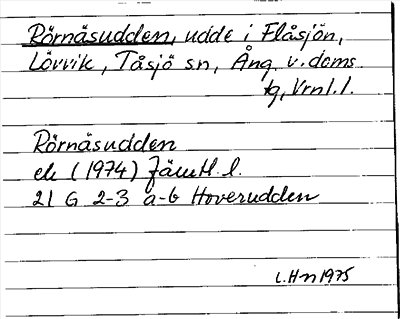 Rörnäsudden, udde i Flåsjön,
Lövvik, Tåsjö sn, Ång. v. doms.
tg, Vrnl. l.
Rörnäsudden
ek (1974) Jämtl. l.
21 G 2-3 a-b Hoverudden
L.Hn 1975